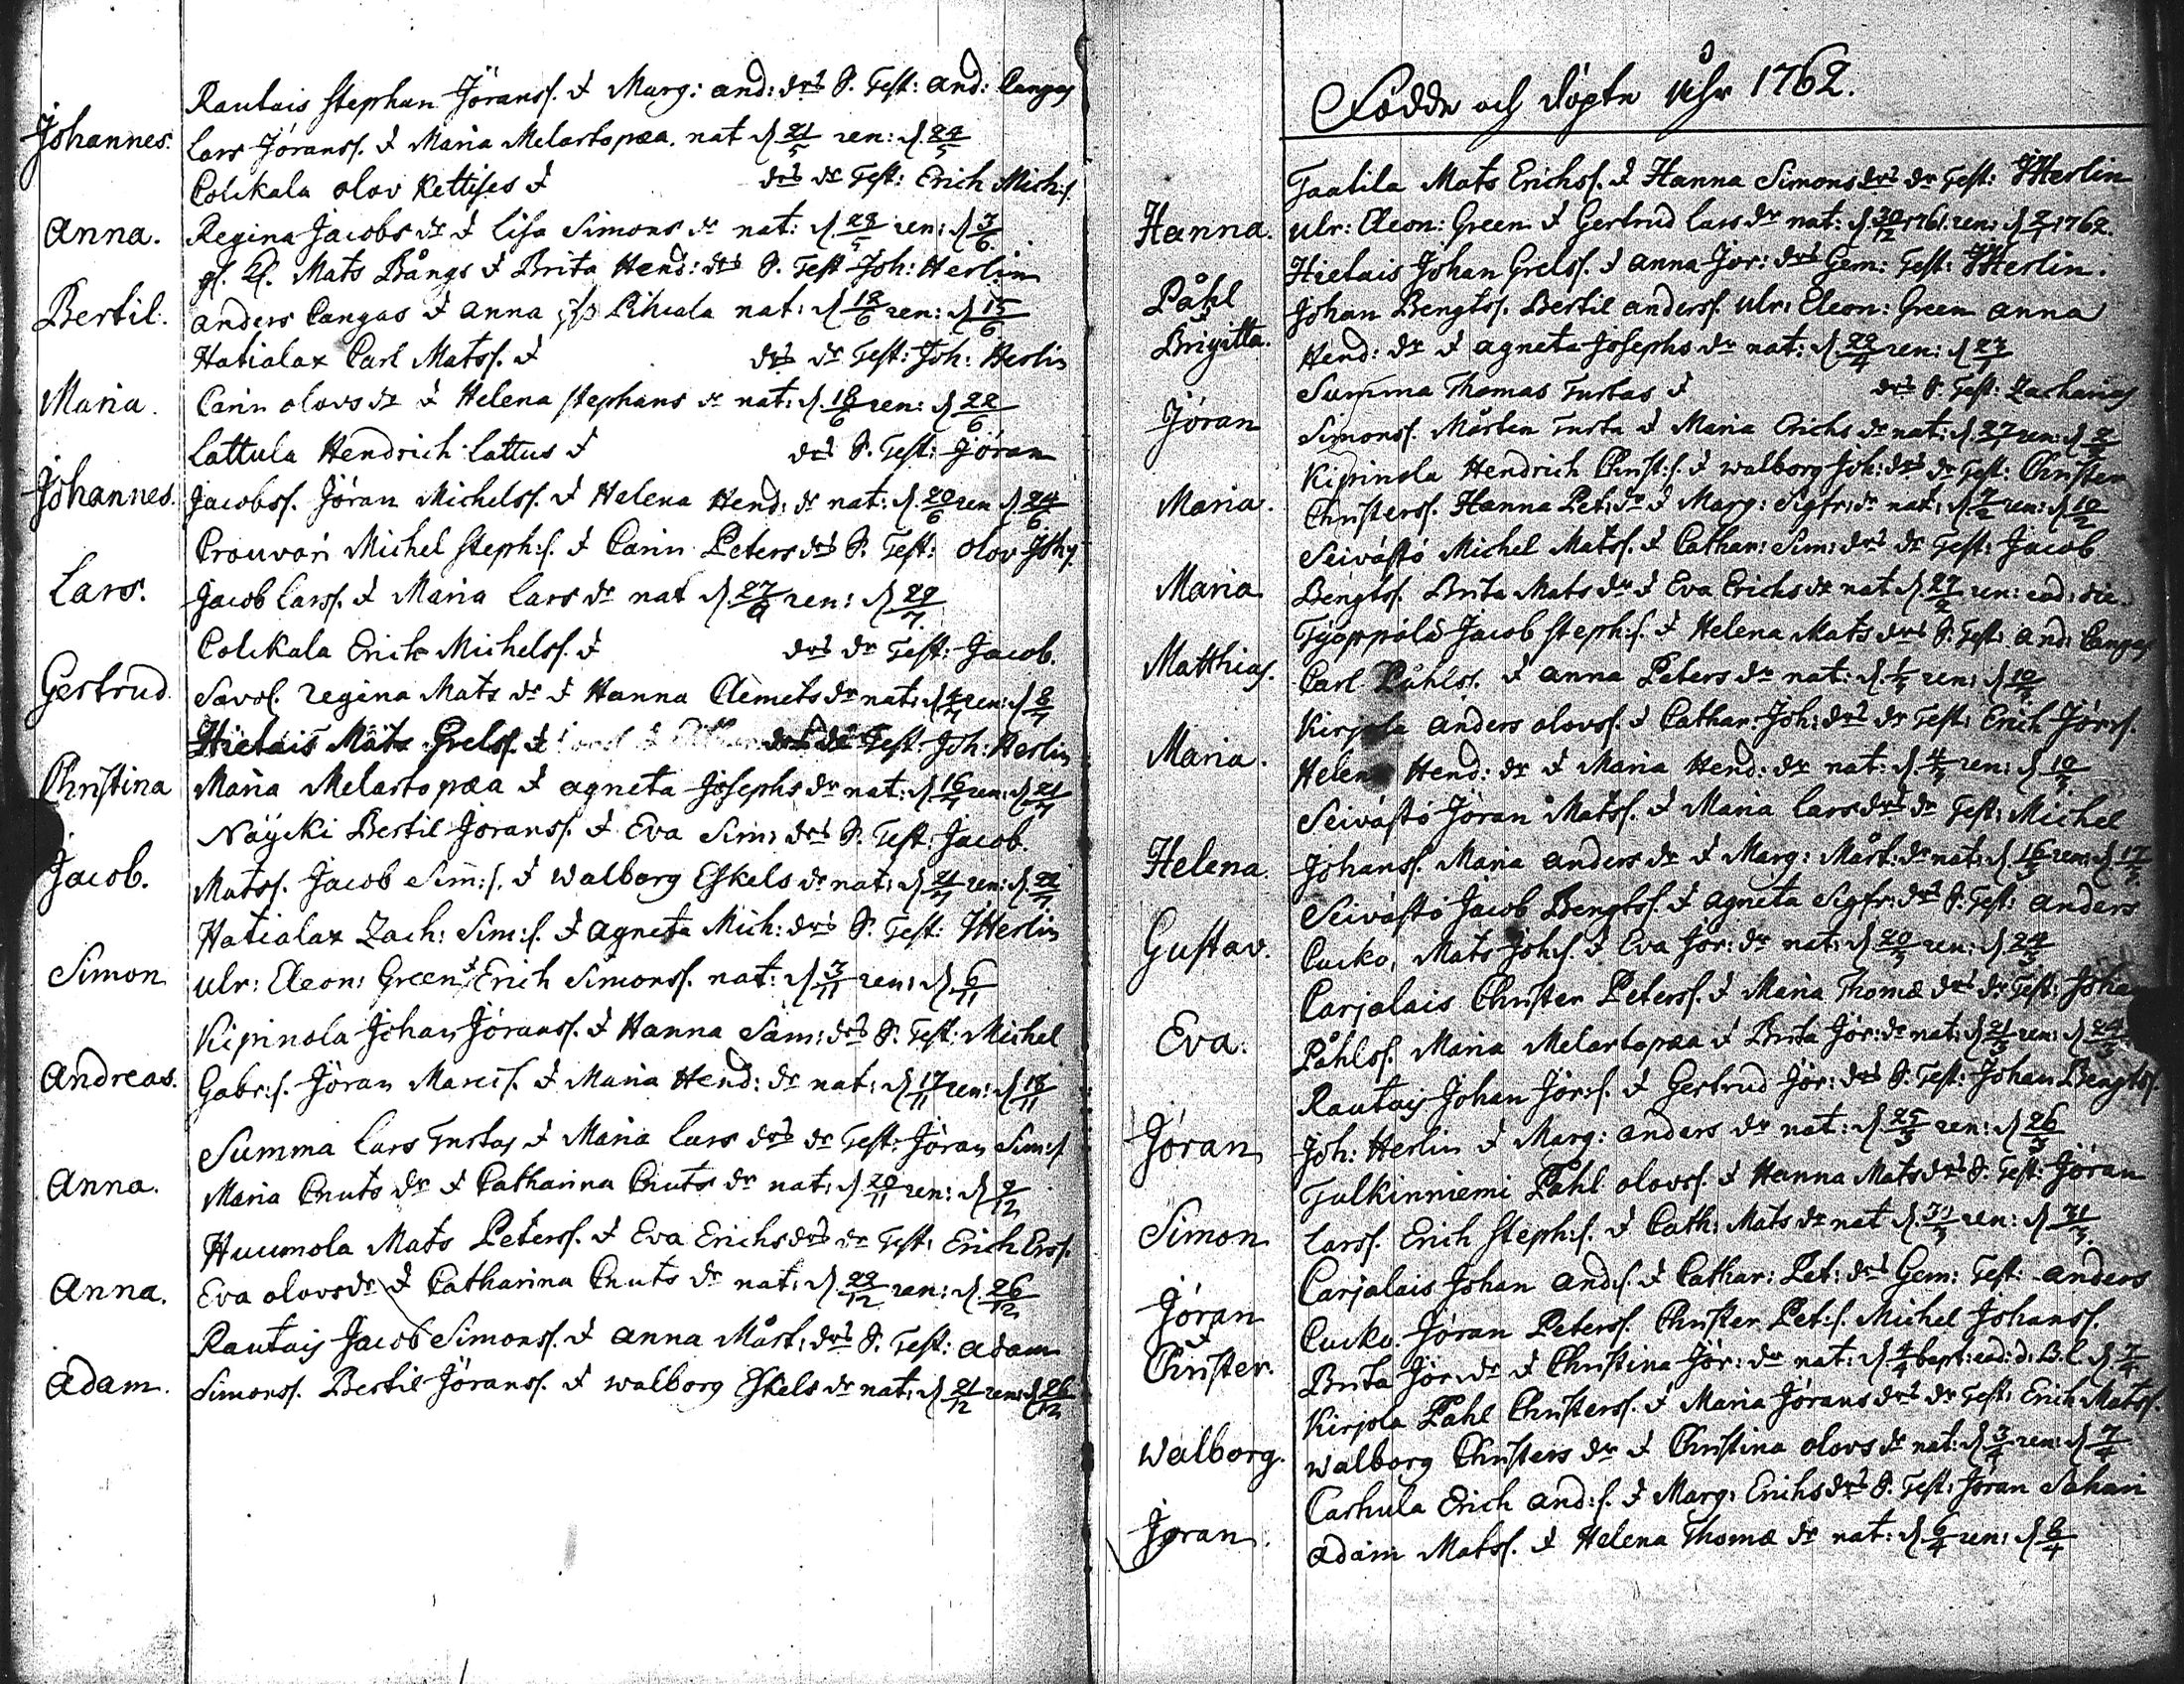 Rautais Stephan Jöranss. & Marg: and: drs S. Test: and: Cangas
Johannes. Lars Jöranss. & Maria Melartopæa. nat d 21/5 ren: d. 24/5
Colckala olov Kettises & drs dr Test: Erich Mich:s.
Anna. Regina Jacobs dr & Lisa Simons dr nat: d. 28/5 ren: d 3/6
Mats Bångs & Brita Hend: drs S. Test Joh: Herlin
Bertil. anders Cangas & anna Pihcala nat: d 12/6 ren: d 15/6
Hatialax Carl Matss. & drs dr Test: Joh: Herlin
Maria. Carin olovs dr & Helena Stephans dr nat: d. 18/6 ren: d 22/6
Lattula Hendrich Lattus & drs S. Test: Jöran
Johannes. Jacobss. Jöran Michelss. & Helena Hend: dr nat: d. 20/6 ren d 24/6
Crouvori Michel Steph:s. & Carin Peters drs S. Test: olov Joh:s.
Lars. Jacob Larss. & Maria Lars dr nat d ren: d 29/7
Colckala Erich Michelss. & drs dr Test: Jacob.
Gertrud. Savol. regina Mats dr & Hanna Clemets dr nat: d 4/7 ren: d 8/7
Hietais Mats Grelss. & drs dr Test: Joh: Herlin
Christina Maria Melartopæa & agneta Josephs dr nat: d 16/7 ren: d 21/7
Näycki Bertil Joranss. & Eva Sim: drs S. Test: Jacob.
Jacob. Matss. Jacob Sim:s. & Walborg Eskels dr nat: d 21/7 ren: d. 22/7
Hatialax Zach: Sim:s. & Agneta Mich: drs S. Test: JHerlin
Simon ulr: Eleon: Green & Erich Simonss. nat: d 3/11 ren: d. 6/11
Kipinola Johan Jöranss. & Hanna Sam: drs S. Test: Michel
Andreas. Gabr:s. Jöran Marcis. & Maria Hend: dr nat: d 17/11 ren: d 18/11
Summa Lars Turtas & Maria Lars drs dr Test: Jöran Sim:s.
Anna. Maria Cnuts dr & Catharina Cnuts dr nat: d 20/11 ren: d 2/12
Huumola Mats Peterss. & Eva Erichs drs dr Test: Erich Erss.
Anna. Eva olovs dr & Catharina Cnuts dr nat: d 22/12 ren: d. 26/12
Rautais Jacob Simonss. & anna Mårt: drs S. Test: adam
Adam. Simonss. Bertil Jöranss. & walborg Eskels dr nat: d 21/12 ren: d 26/12
Födde och döpte Åhr 1762.
Taatila Mats Erichss. & Hanna Simons drs dr Test: JHerlin
Hanna. ulr: Eleon: Green & Gertrud Lars dr nat: d. 30/12 1761. ren: d 2/1 1762.
Hietais Johan Grelss. & anna Jör: drs Gem: Test: JHerlin.
Påhl Johan Bengtss. Bertil anderss. ulr: Eleon: Green anna
&
Brigitta. Hend: dr & agneta Josephs dr nat: d ren: d
Summa Thomas Turtas & drs S. Test: Zacharias
Jöran Simonss. Mårten Turta & Maria Erichs dr nat: d. ren: d
Kipinola Hendrich Christ:s. & walborg Joh: drs dr Test: Christer
Maria. Christerss. Hanna Pet: dr & Marg: Sigfr: dr nat: d 7/2 ren: d 10/2
Seivästö Michel Matss. & Cathar: Sim: drs dr Test: Jacob
Maria Bengtss. Brita Mats dr & Eva Erichs dr nat d. 27/2 ren: eod: die.
Tyoppölä Jacob Steph:s. & Helena Mats drs S. Test: and: Cangas
Matthias. Carl Påhlss. & anna Peters dr nat: d. ren: d 10/3
Kirjola anders olovss. & Cathar: Joh: drs dr Test: Erich Jörss.
Maria. Helena Hend: dr & Maria Hend: dr nat: d. 4/3 ren: d 10/3
Seivästö Jöran Matss. & Maria Lars drs dr Test: Michel
Helena. Johanss. Maria anders dr & Marg: Mårt: dr nat: d. 16/3 ren: d. 17/3
Seivästö Jacob Bengtss. & Agneta Sigfr: drs S. Test: anders
Gustav. Cucko, Mats Joh:s. & Eva Jör: dr nat: d 20/3 ren: d 24/3
Carjalais Christer Peterss. & Maria Thomæ drs dr Test: Johan
Eva. Påhlss. Maria Melartopæa & Brita Jör: dr nat: d 21/3 ren: d 24/3
Rautais Johan Jör:s. & Gertrud Jör: drs S. Test: Johan Bengtss.
Jöran Joh: Herlin & Marg: anders dr nat: d 25/3 ren: d 26/3
Tulkinniemi Påhl olovss. & Hanna Mats drs S. Test: Jöran
Simon Larss. Erich Steph:s. & Cath: Mats dr nat d. 31/3 ren: d 31/3
Carjalais Johan and:s. & Cathar: Pet: drs Gem: Test: anders
Jöran Cucko. Jöran Peterss. Christer Pet:s. Michel Johanss.
&
Christer. Brita Jör: dr & Christina Jör: dr nat: d 4/4 bapt: eod: d: B.C. d 7/4
Kirjola Påhl Christerss. & Maria Jörans drs dr Test: Erich Matss.
Walborg. walborg Christers dr & Christina olovs dr nat: d 3/4 ren: d 7/4
Carhula Erich and:s. & Marg: Erichs drs S. Test: Jöran Sahari
Jöran. adam Matss. & Helena Thomæ dr nat: d 6/4 ren: d 8/4